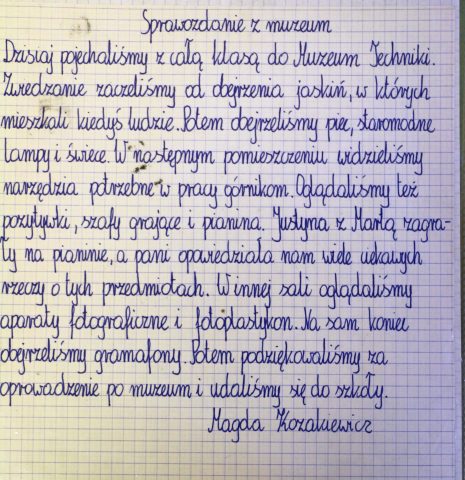 Sprawozdanie z muzeum
Dzisiaj pojechaliśmy z całą klasą do Muzeum Techniki.
Zwiedzanie zaczeliśmy od obejrzenia jaskiń, w których
mieszkali kiedyś ludzie. Potem obejrzeliśmy piec, staromodne
lampy i świece. W następnym pomieszczeniu widzieliśmy
narzędzia potrzebne w pracy górnikom. Oglądaliśmy też
pozytywki, szafy grające i pianina. Justyna z Martą zagra-
ły na pianinie, a pani opowiedziała nam wiele ciekawych
rzeczy o tych przedmiotach. W innej sali oglądaliśmy
aparaty fotograficzne i fotoplastykon. Na sam koniec
obejrzeliśmy gramafony. Potem podziękowaliśmy za
oprowadzenie po muzeum i udaliśmy się do szkoły.
Magda Kozakiewicz